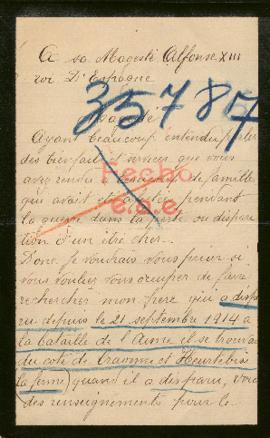 A sa Magesté Alfonse XIII
roi D'Espagne
35787
Ayant beaucoup entendu parler
des bienfaits et services que vous
avez rendu a beaucoup de famille
Hecho
qui avait
pendant
la guerre dans la perte ou dispari
e.s.e.
tion d'un être cher.
Donc je voudrais vous prier si
vous voulez vous occuper de faire
rechercher mon frère qui a dispa
ru depuis le 21 septembre 1914 a
la bataille de l'Aisne il se trouvait
du coté de Craonne et Heurtebise
la ferme) quand il a disparu, voici
des renseignements pour le